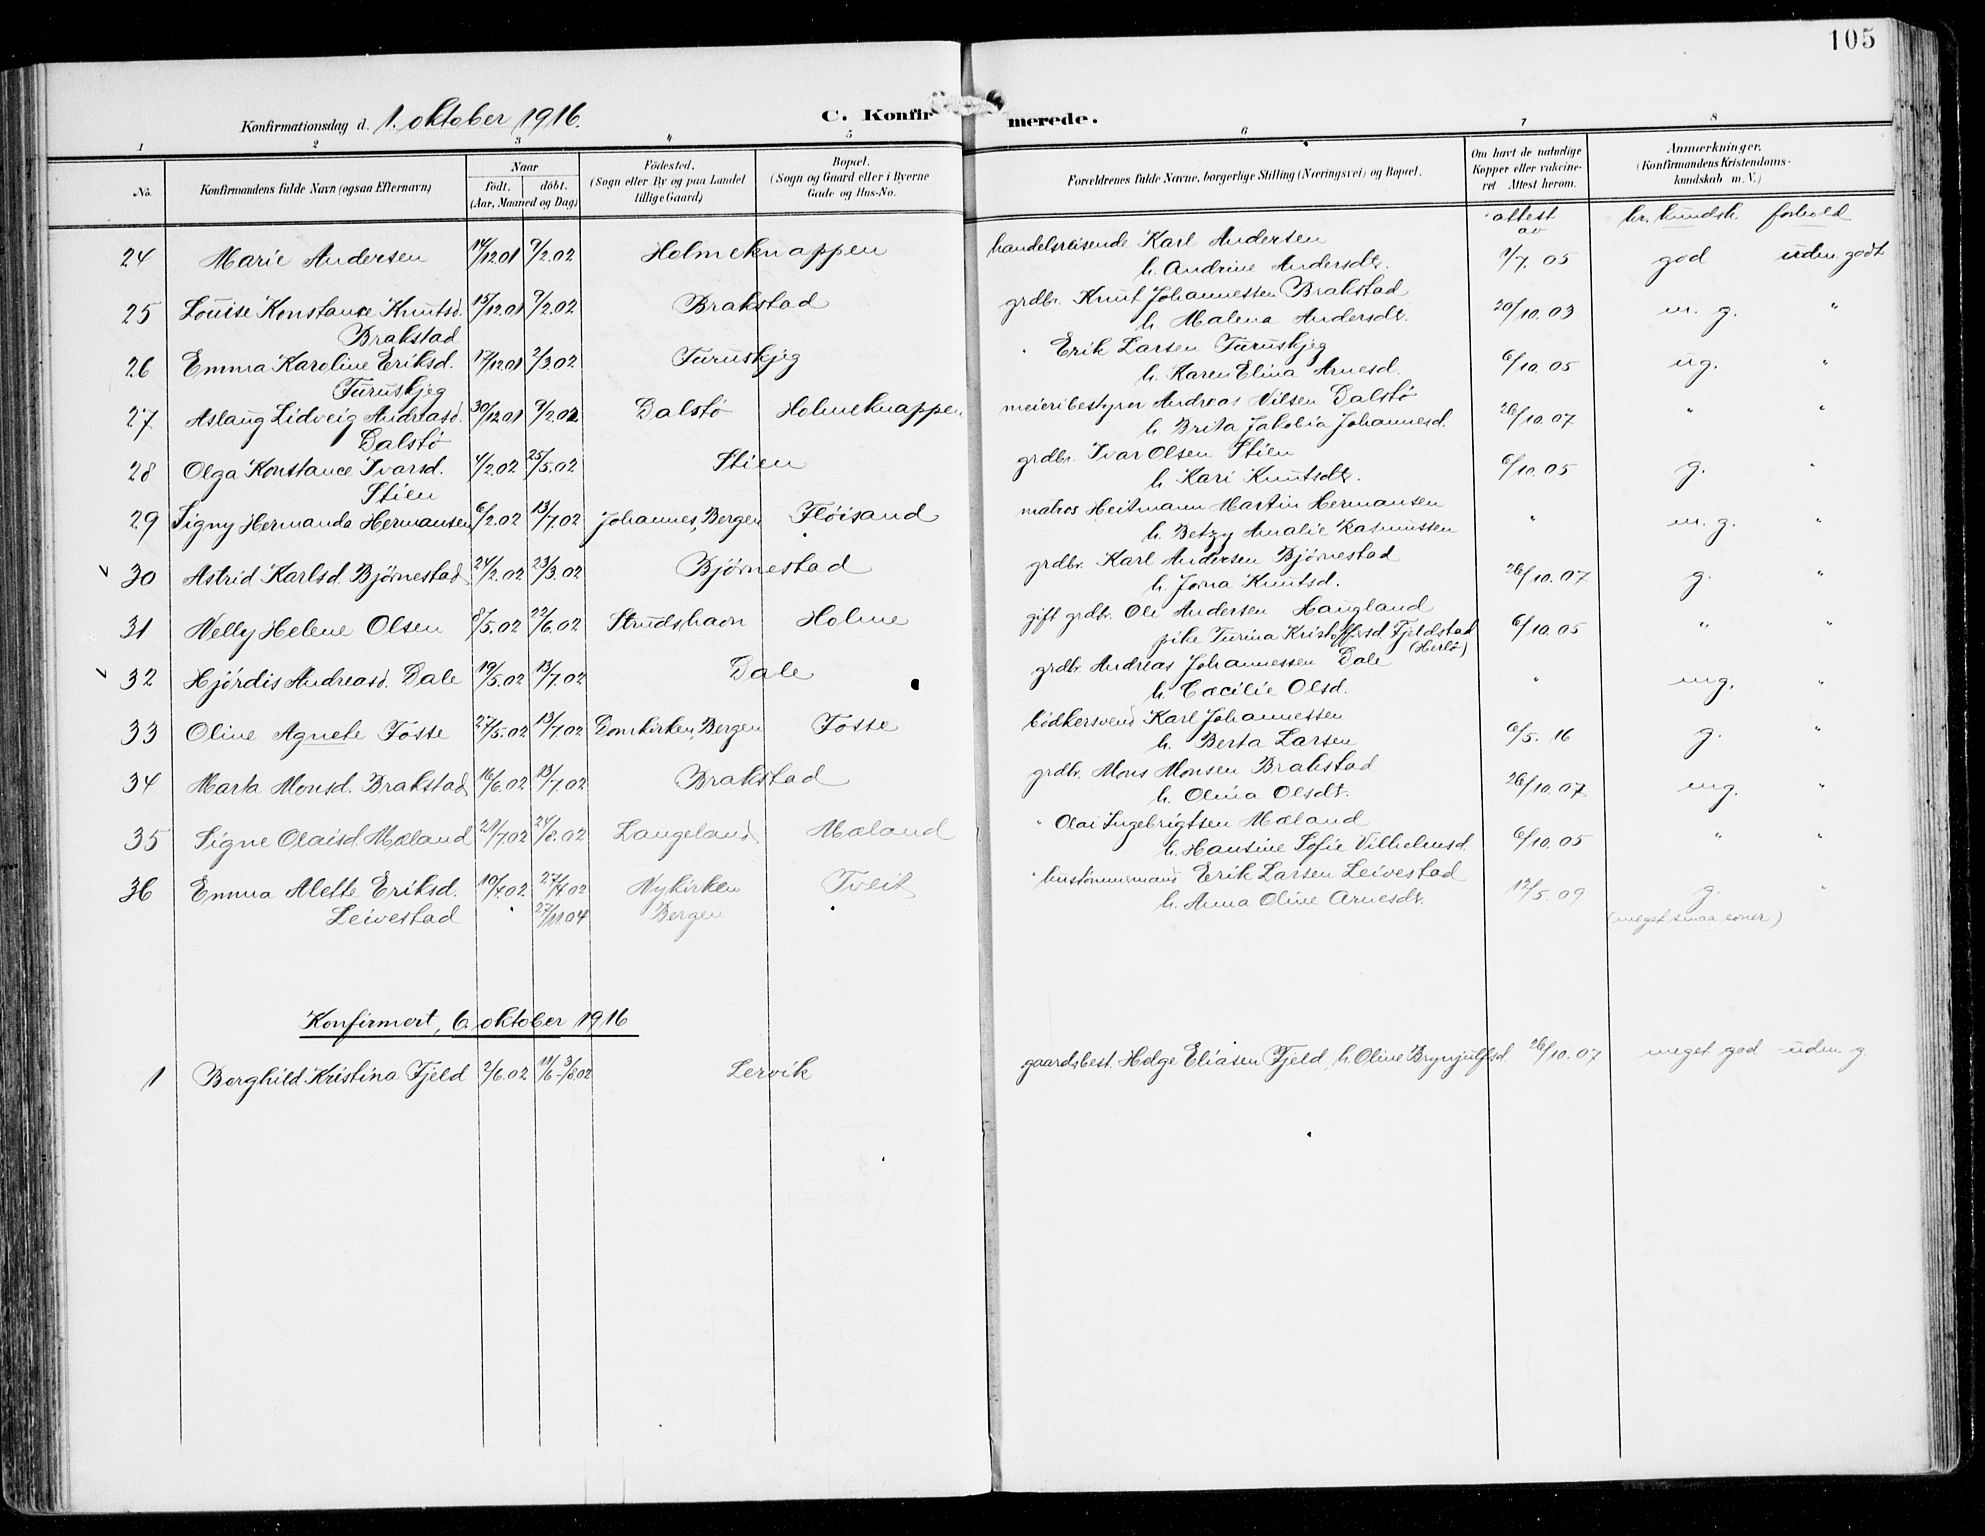 105
Konfirmationsdag d. 1. oktober 1916.
C. Konfirmerede.
1 2 3 4 5 6 7 8
No. Konfirmandens fulde Navn (ogsaa Efternavn) Naar født. døbt. (Aar, Maaned og Dag) Fødested. (Sogn eller By og paa Landet tillige Gaard) Bopæl. (Sogn og Gaard eller i Byerne Gade og Hus-No. Forældrenes fulde Navne, borgerlige Stilling (Næringsvei) og Bopæl. Om havt de naturlige Kopper eller vakcineret Attest herom. Anmærkninger. (Konfirmandens Kristendomskundskab m. V.)
attest av kr. kundsk. forhold
24 Marie Andersen 14/12.01 9/2.02 Holmeknappen handelsreisende Karl Andersen 1/7.05 god uden godt
h. Andrine Andersdt.
25 Louise Konstance Knutsd. 15/12.01 9/2.02 Brakstad grdbr. Knut Johannessen Brakstad 20/10.03 m. g. "
Brakstad h. Malena Andersdt.
26 Emma Karoline Eriksd. 17/12.01 2/3.02 Furuskjeg " Erik Larsen Furuskjeg 6/10.05 ug. "
Furuskjeg h. Karen Elina Arnesd.
27 Aslaug Lidveig Andreasd. 30/12.01 9/2.02 Dalstø Holmeknappen meieribestyrer Andreas Nilsen Dalstø 26/10.07 " "
Dalstø h. Brita Jakobia Johannesd.
28 Olga Konstance Ivarsd. 4/2.02 25/5.02 Stien grdbr. Ivar Olsen Stien 6/10.05 g. "
Stien h. Kari Knutsdt.
29 Signy Hermanda Hermansen 6/2.02 13/7.02 Johannes, Bergen Fløisand matros Heitmann Martin Hermansen " m. g. "
h. Betzy Amalie Rasmussen
v 30 Astrid Karlsd. Bjørnestad 24/2.02 23/3.02 Bjørnestad grdbr. Karl Andersen Bjørnestad 26/10.07 g. "
h. Jorna Knutsd.
31 Nelly Helene Olsen 8/5.02 22/6.02 Strudshavn Holme gift grdbr. Ole Andersen Haugland 6/10.05 " "
pike Turina Kristoffersd. Fjeldstad (Herlø)
v 32 Hjørdis Andreasd. Dale 19/5.02 13/7.02 Dale grdbr. Andreas Johannessen Dale " mg. "
h. Cæcilie Olsd.
33 Oline Agnete Fosse 27/5.02 13/7.02 Domkirken, Bergen Fosse bødkersvend Karl Johannessen 6/5.16 g. "
h. Berta Larsen
34 Marta Monsd. Brakstad 16/6.02 13/7.02 Brakstad grdbr. Mons Monsen Brakstad 26/10.07 mg. "
h. Olina Olsdt.
35 Signe Olaisd. Mæland 29/7.02 24/8.02 Langeland Mæland " Olai Ingebrigtsen Mæland 6/10.05 " "
h. Hansine Sofie Vilhelmsd.
36 Emma Alette Eriksd. 10/7.02 27/7.02 Nykirken Tveit " hustømmermand Erik Larsen Leivestad 12/5.09 g. "
Leivestad 27/11.04 Bergen h. Anna Oline Arnesdt. (meget smaa evner)
Konfirmert, 6. oktober 1916
1 Borghild Kristina Fjeld 2/6.02 11/6-3/8.02 Lervik gaardsbest. Helge Eliasen Fjeld, h. Oline Brynjulfsd. 26/10.07 meget god - uden g.